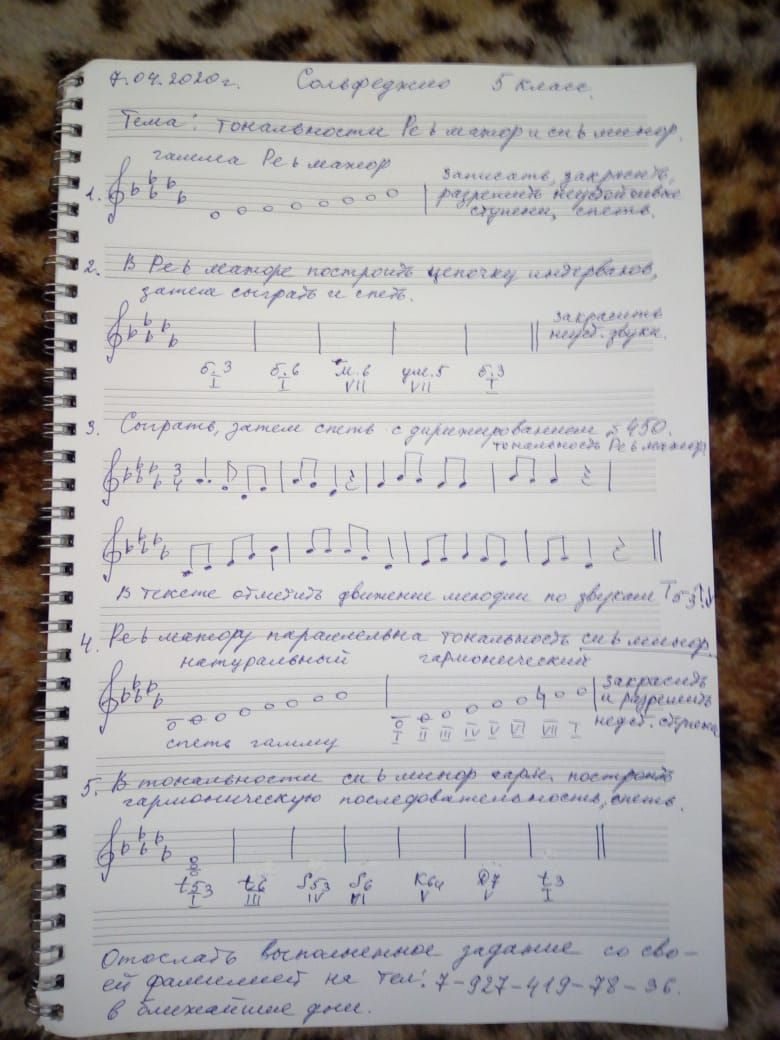 7.04.2020г. Сольфеджио 5 класс.
Тема: тональности Ре b мажор и си b минор.
гамма Ре b мажор
1.
Записать, закрасить,
разрешить неустойчивые
ступени, спеть.
2. В Ре b мажоре построить цепочку интервалов,
затем сыграть и спеть.
закрасить
неуст. звуки.
б.3 б.6 м.6 ум.5 б.3
I I VII VII I
3. Сыграть, затем спеть с дирижированием, 450.
тональность Ре b мажор
3
4
В тексте отметить движение мелодии по звукам Т53
4. Ре b мажору параллельна тональность си b минор.
натуральный гармонический
закрасить
и разрешить
неуст. ступени
I II III IV V VI VII I
спеть гамму
5. В тональности си b минор гарм. построить
гармоническую последовательность, спеть.
t53 t6 S53 S6 K64 D7 t3
I III IV VI V V I
Отослать выполненное задание со сво-
ей фамилией на тел: 7-927-419-78-36.
в ближайшие дни.